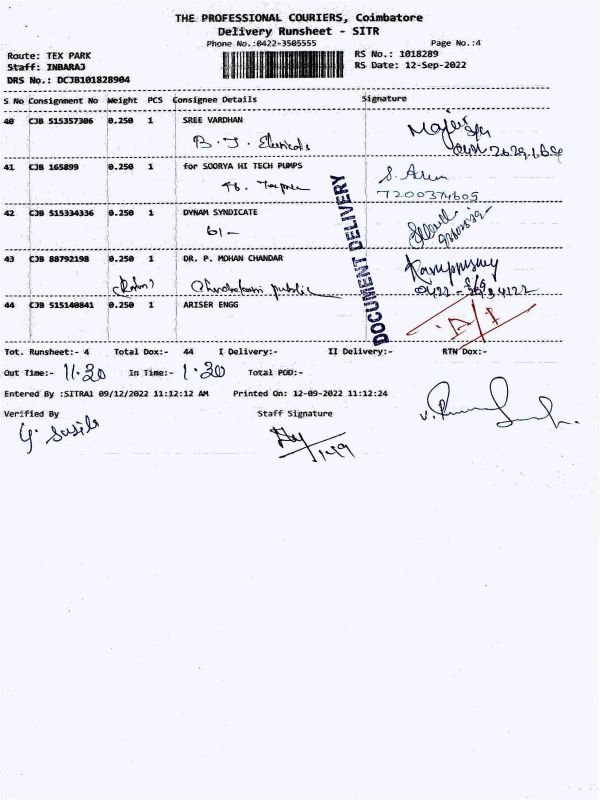 THE PROFESSIONAL COURIERS, Coimbatore
Delivery Runsheet - SITR
Phone No.:0422-3505555 Page No.:4
Route: TEX PARK RS No.: 1018289
Staff: INBARAJ RS Date: 12-Sep-2022
DRS No.: DCJB101828904
S No Consignment No Weight PCS Consignee Details Signature
40 CJB 515357306 0.250 1 SREE VARDHAN
B. J.
41 CJB 165899 0.250 1 for SOORYA HI TECH PUMPS
S. Arun
7200374605
42 CJB 515334336 0.250 1 DYNAM SYNDICATE
61-
43 CJB 88792198 0.250 1 DR. P. MOHAN CHANDAR
public
44 CJB 515140841 0.250 1 ARISER ENGG
DOCUMENT DELIVERY
Tot. Runsheet:- 4 Total Dox:- 44 I Delivery:- II Delivery:- RTN Dox:-
Out Time:- 11.30 In Time:- 1.30 Total POD:-
Entered By :SITRA1 09/12/2022 11:12:12 AM Printed On: 12-09-2022 11:12:24
Verified By Staff Signature